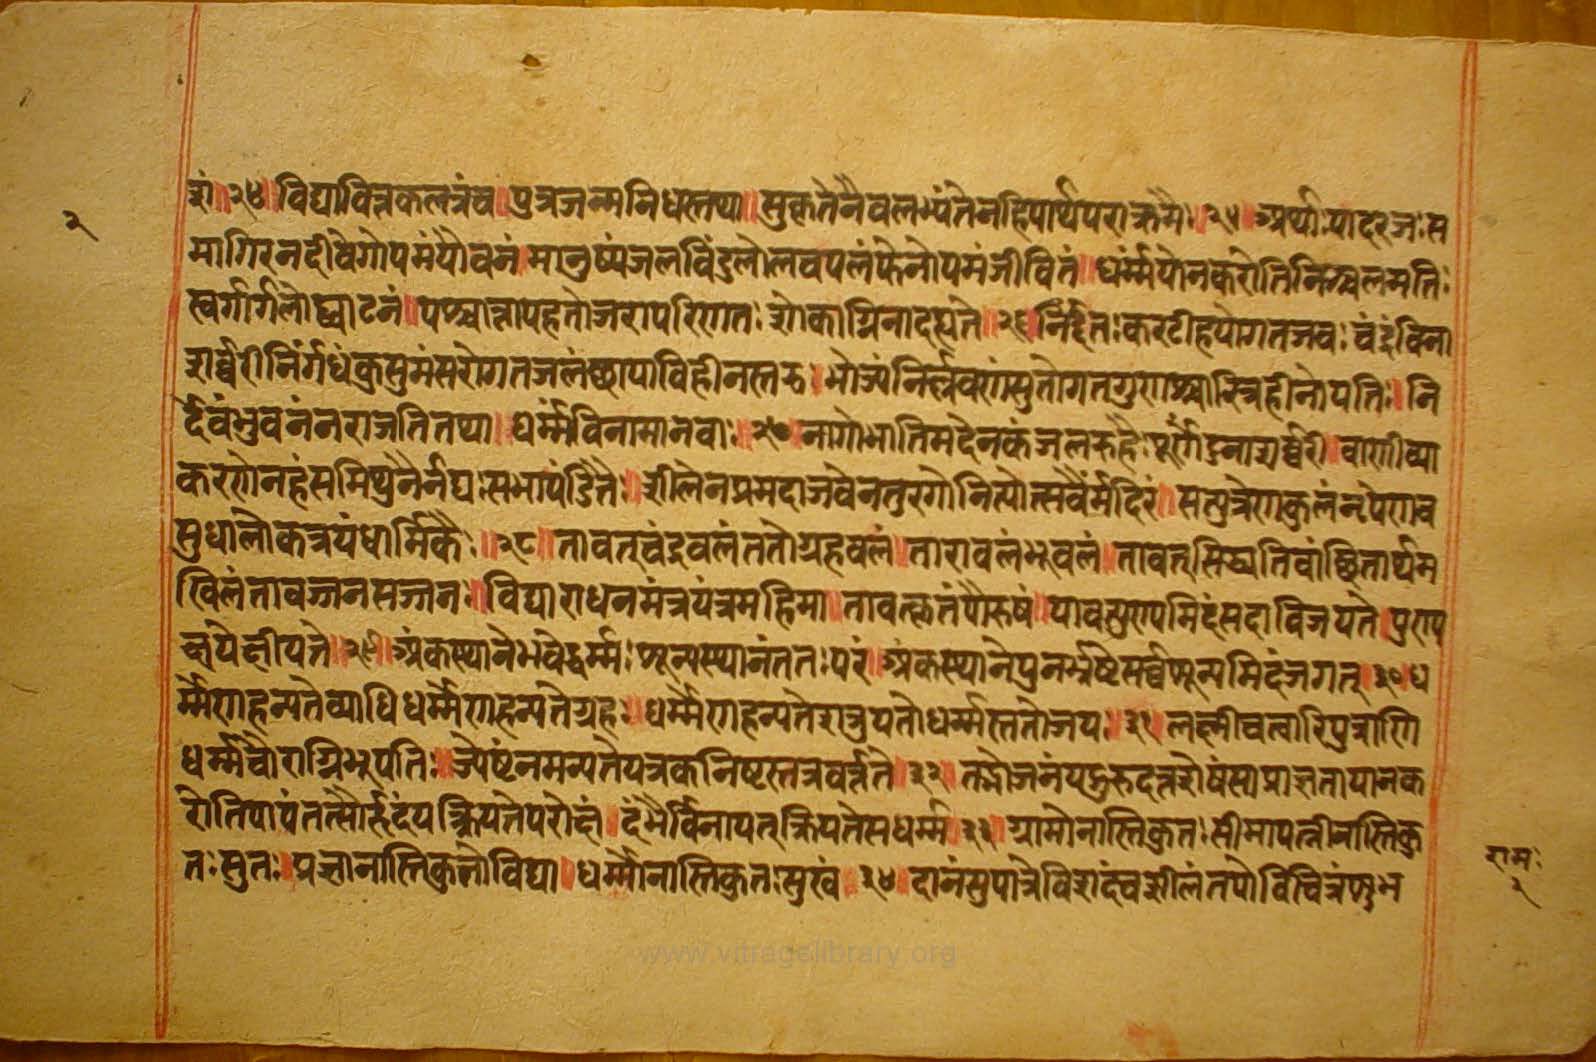 शं॥२४॥विद्यावित्तकलत्रंच॥पुत्रजन्मनिधस्तथा॥सुकृतेनैवलभ्यंतेनहिपार्थपराक्रमैः॥२५॥अर्थाःपादरजःस
मागिरनदीवेगोपमंयौवनं॥मानुष्यंजलविंदुलोलचपलंफेनोपमंजीवितं॥धर्म्मंयोनकरोतिनिश्चलमतिः
स्वर्गार्गलोद्घाटनं॥पश्चात्तापहतोजरापरिणतःशोकाग्निनादह्यते॥२६॥निर्दंतःकरटीहयोगतजवःचंद्रंविना
शर्व्वरीनिर्गंधंकुसुमंसरोगतजलंछायाविहीनस्तरु॥भोज्यंनिर्लवणंसुतोगतगुणश्चारित्रहीनोयतिः॥नि
र्देवंभुवनंनराजतितथा॥धर्म्मंविनामानवाः॥२७॥नागोभातिमदेनकंजलरुहैःपूर्णेंदुनाशर्व्वरी॥वाणीव्या
करणेनहंसमिथुनैर्नद्यःसभापंडितैः॥शीलेनप्रमदाजवेनतुरगोनित्योत्सवैर्मंदिरं॥सत्पुत्रेणकुलंनृपेणव
सुधालोकत्रयंधार्मिकैः॥२८॥तावत्चंद्रवलंततोग्रहवलं॥तारावलंभूवलं॥तावत्सिद्ध्यतिवांछितार्थम
खिलंतावज्जनसज्जनः॥विद्याराधनमंत्रयंत्रमहिमा॥तावत्कृतंपौरुषं॥यावत्पुण्यमिदंसदाविजयते॥पुण्य
क्षयेक्षीयते॥२९॥अंकस्थानेभवेद्धर्म्मःशून्यस्थानंततःपरं॥अंकस्थानेपुनर्भ्रष्टेसर्व्वशून्यमिदंजगत्॥३०॥ध
र्म्मेणहन्यतेव्याधिधर्म्मेणहन्यतेग्रहः॥धर्म्मेणहन्यतेशत्रुयतोधर्म्मस्ततोजयः॥३१॥लक्ष्मीचत्वारिपुत्राणि
धर्म्मचौराग्निभूपतिः॥ज्येष्टंनमन्यतेयत्रकनिष्टस्तत्रवर्त्तते॥३२॥तद्भोजनंयद्गुरुदत्तशेषंसाप्राज्ञतायानक
रोतिपापंतत्सौहृदंयत्क्रियतेपरोक्षं॥दंभैर्विनायत्क्रियतेसधर्म्म॥३३॥ग्रामोनास्तिकुतःसीमापत्नीनास्तिकु
तःसुतः॥प्रज्ञानास्तिकुतोविद्या॥धर्म्मोनास्तिकुतःसुखं॥३४॥दानंसुपात्रेविशदंचशीलंतपोविचित्रंशुभ
२
रामः
२
www.vitragelibrary.org